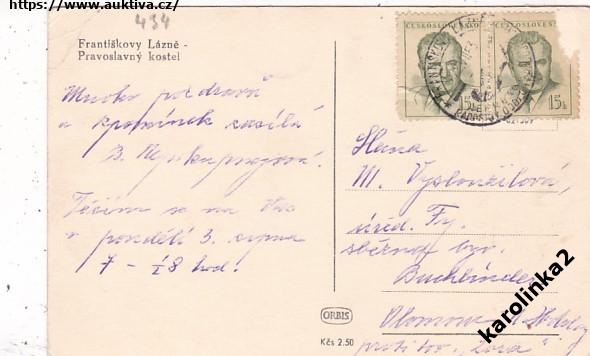 https://www.auktiva.cz/
434
Františkovy Lázně -
Pravoslavný kostel
Mnoho pozdravů
a vzpomínek zasílá
B.
Těším se na Vás
v pondělí 3. srpna
7 - ½8 hod!
ČESKOSLOVENSKO
15h
ČESKOSLOVENSKO
15h
Slečna
M. Vysloužilová,
úřed. Fy.
sběrny
Buchbinder
Olomouc
ORBIS
Kčs 2.50
karolinka2